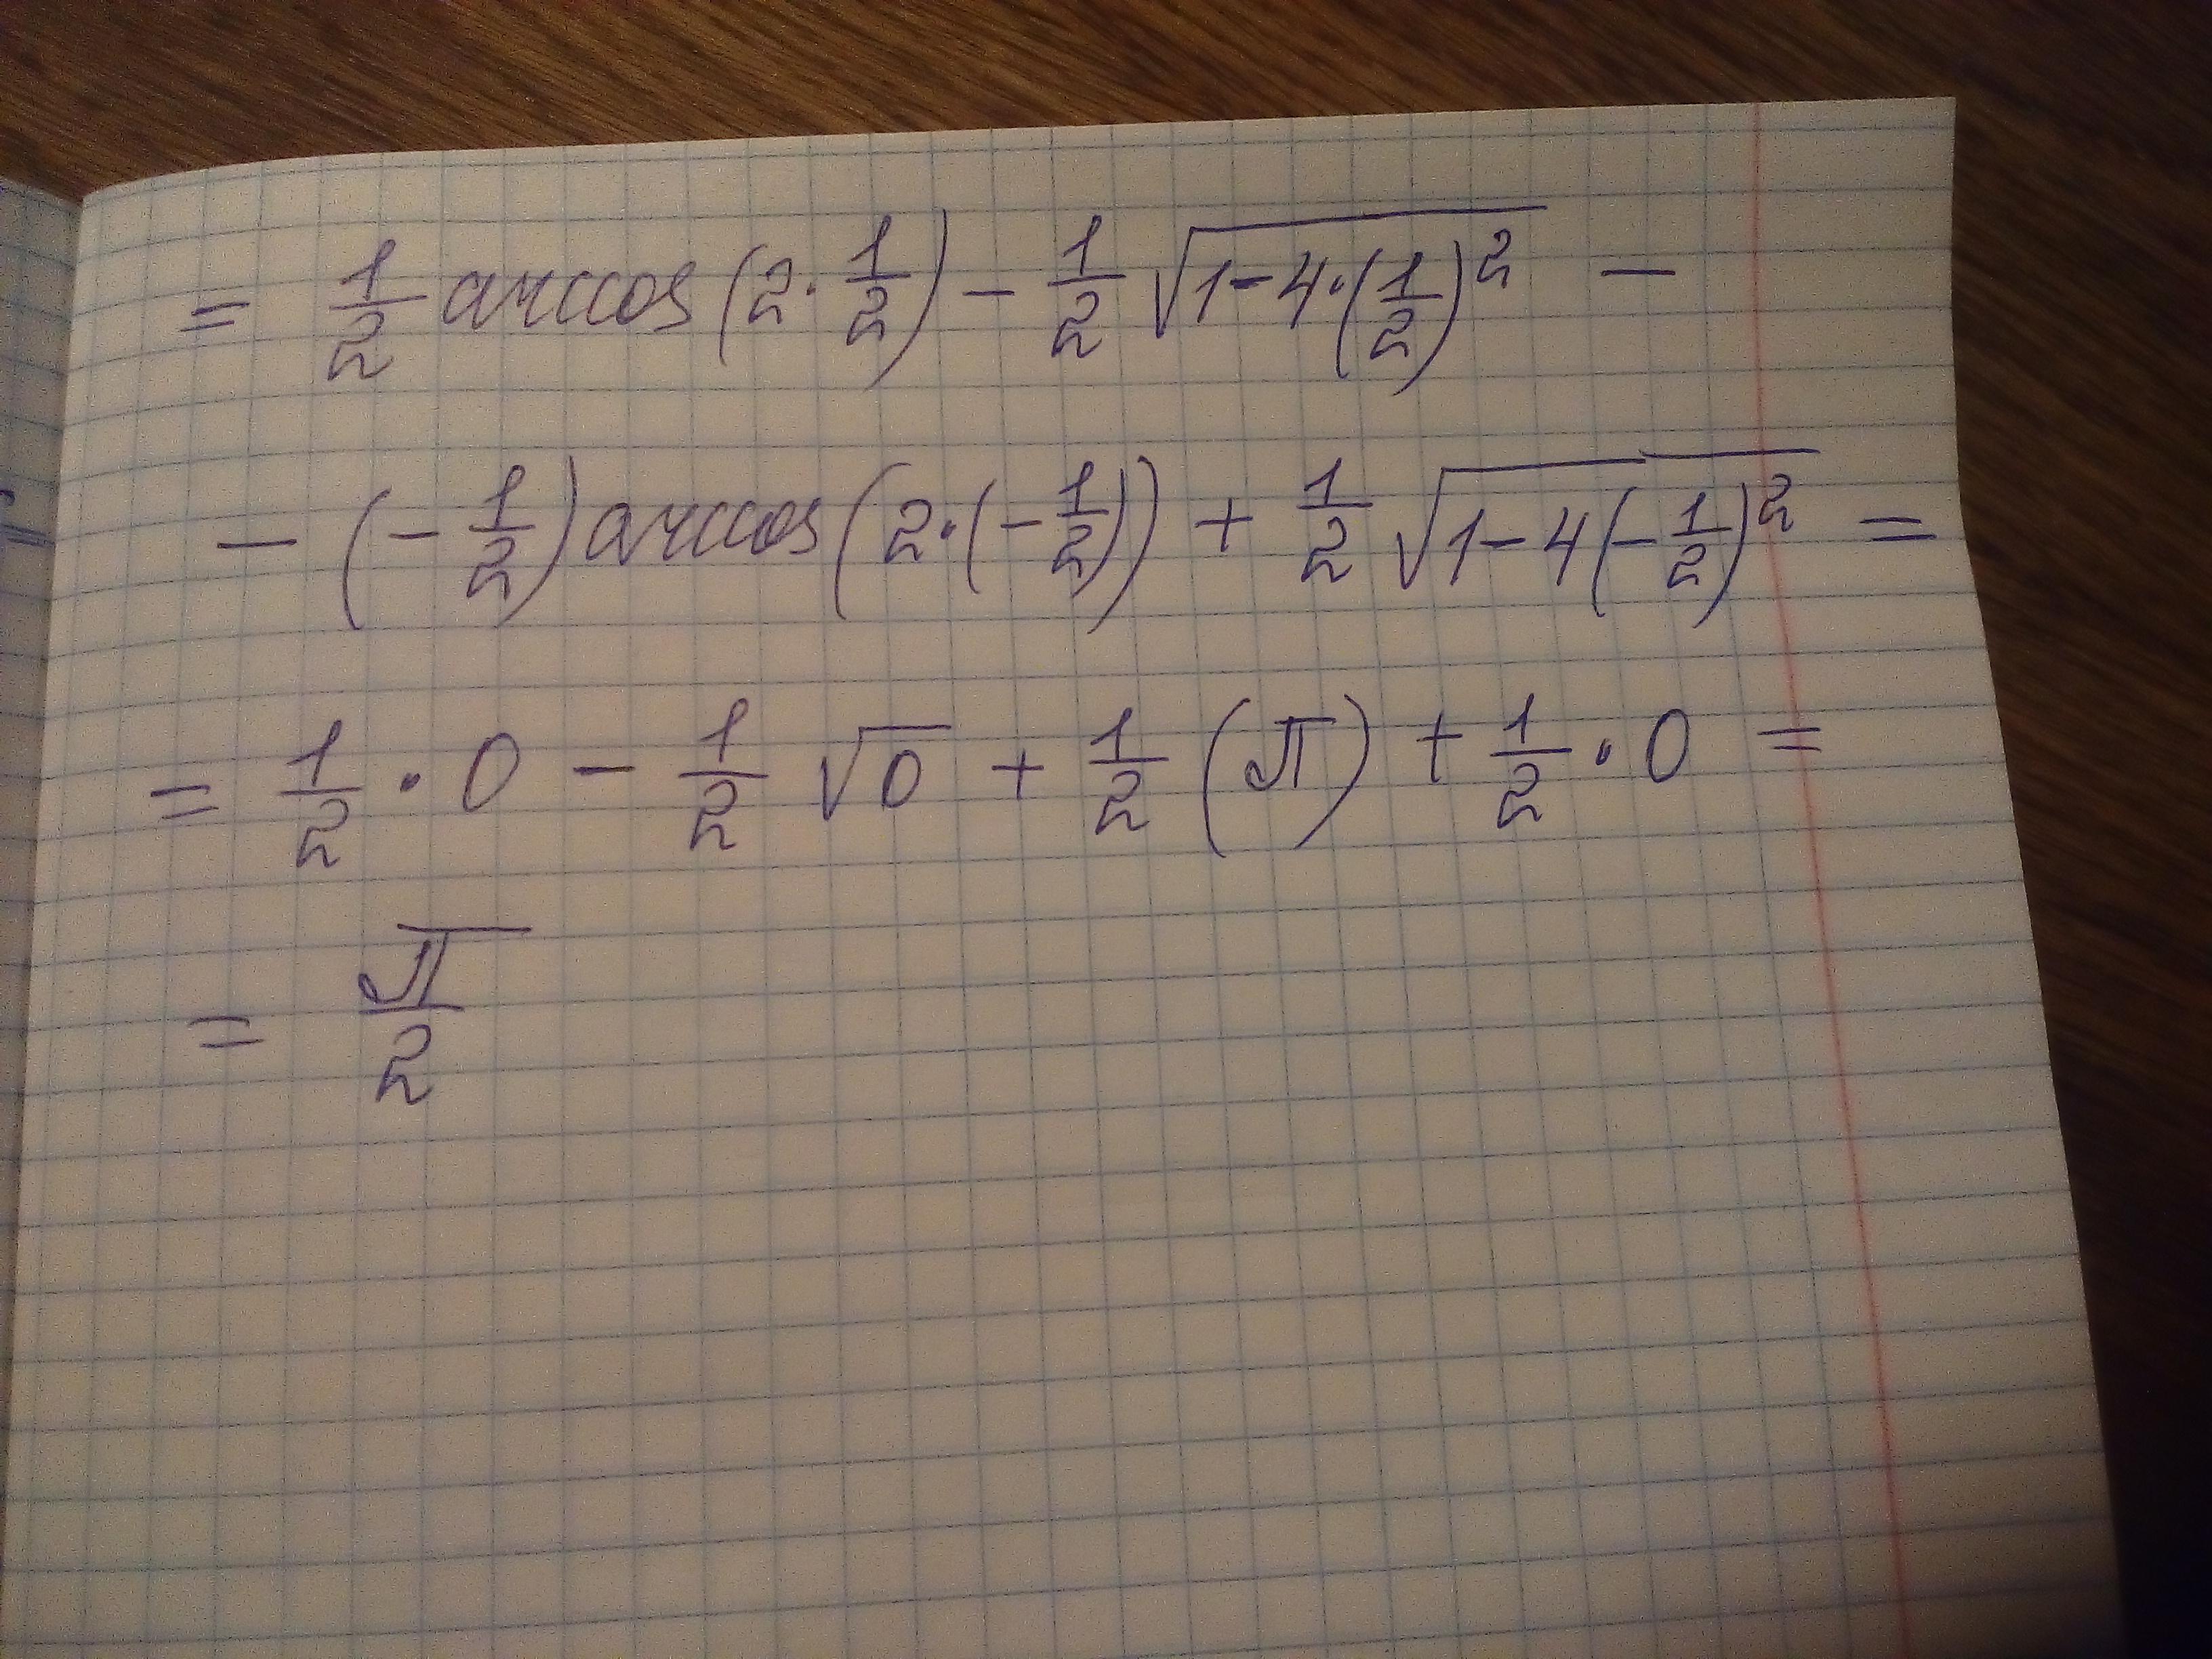 = 1/2 arccos(2·1/2) - 1/2 √(1-4·(1/2)²) -
- (-1/2) arccos(2·(-1/2)) + 1/2 √(1-4(-1/2)²) =
= 1/2 · 0 - 1/2 √0 + 1/2 (π) + 1/2 · 0 =
= π/2